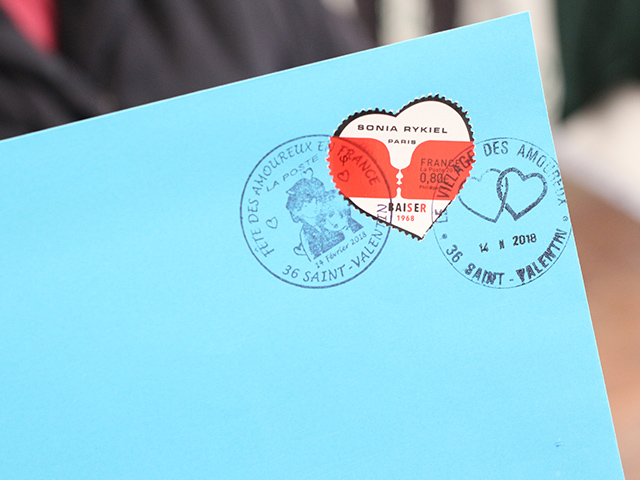 SONIA RYKIEL
PARIS
FRANCE
La Poste
0,80
BAISER
1968
FÊTE DES AMOUREUX EN FRANCE
LA POSTE
14 Février 2018
36 SAINT-VALENTIN
LE VILLAGE DES AMOUREUX
14 II 2018
36 SAINT-VALENTIN